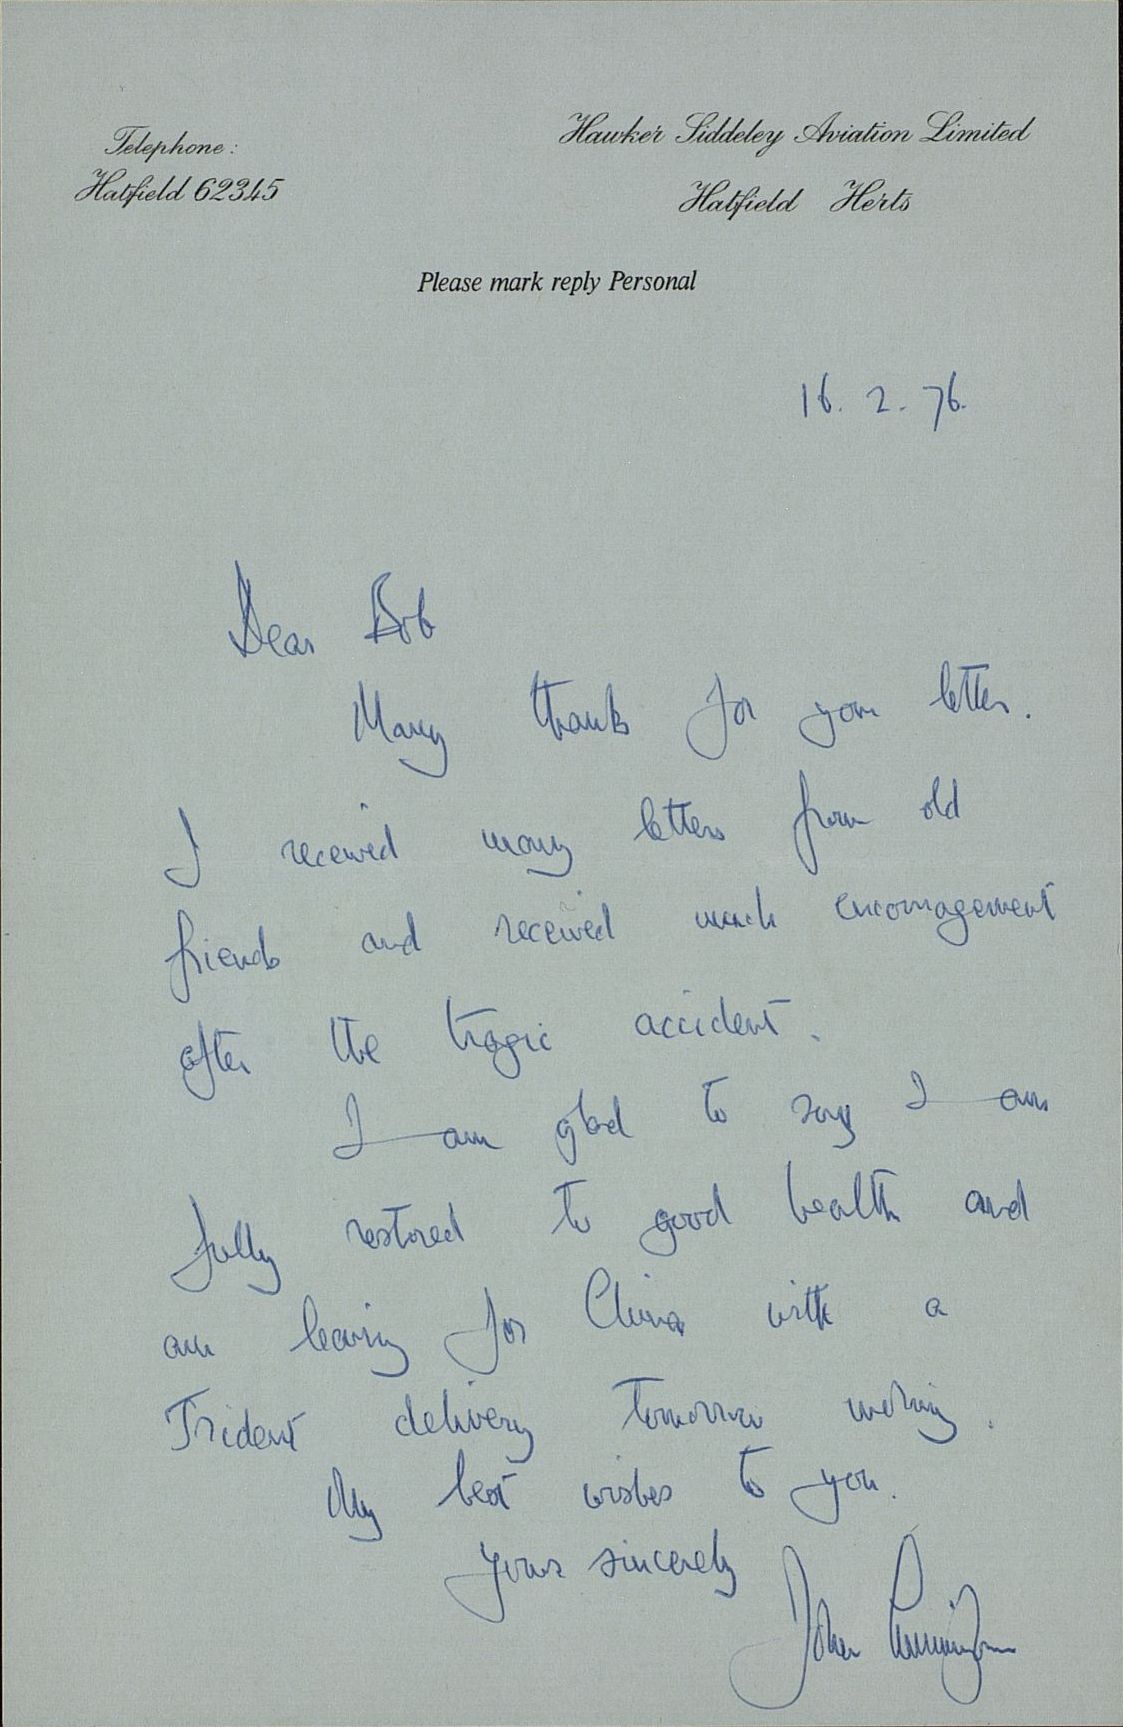 Telephone :
Hatfield 62345
Hawker Siddeley Aviation Limited
Hatfield Herts
Please mark reply Personal
16. 2. 76.
Dear Bob
Many thanks for your letter.
I received many letters from old
friends and received much encouragement
after the tragic accident.
I am glad to say I am
fully restored to good health and
am leaving for China with a
Trident delivery tomorrow morning.
My best wishes to you.
Yours sincerely
John Cunningham